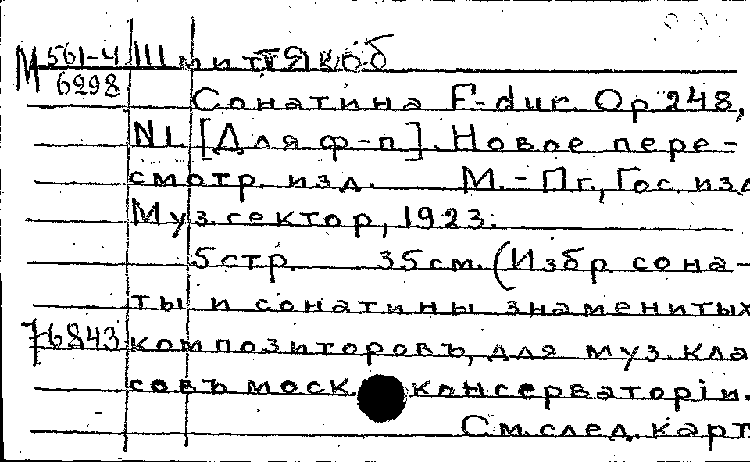 М 561-4 Шмитт Якоб
6298
Сонатина F-dur. Op 248,
N1. [Для ф-п]. Новое пере-
смотр. изд. М.-Пг., Гос. изд
Муз. сектор, 1923.
5 стр. 35 см. (Избр. сона-
ты и сонатины знаменитых
76843 композиторовъ, для муз. кла
совъ моск консерваторіи.
См. след. карт